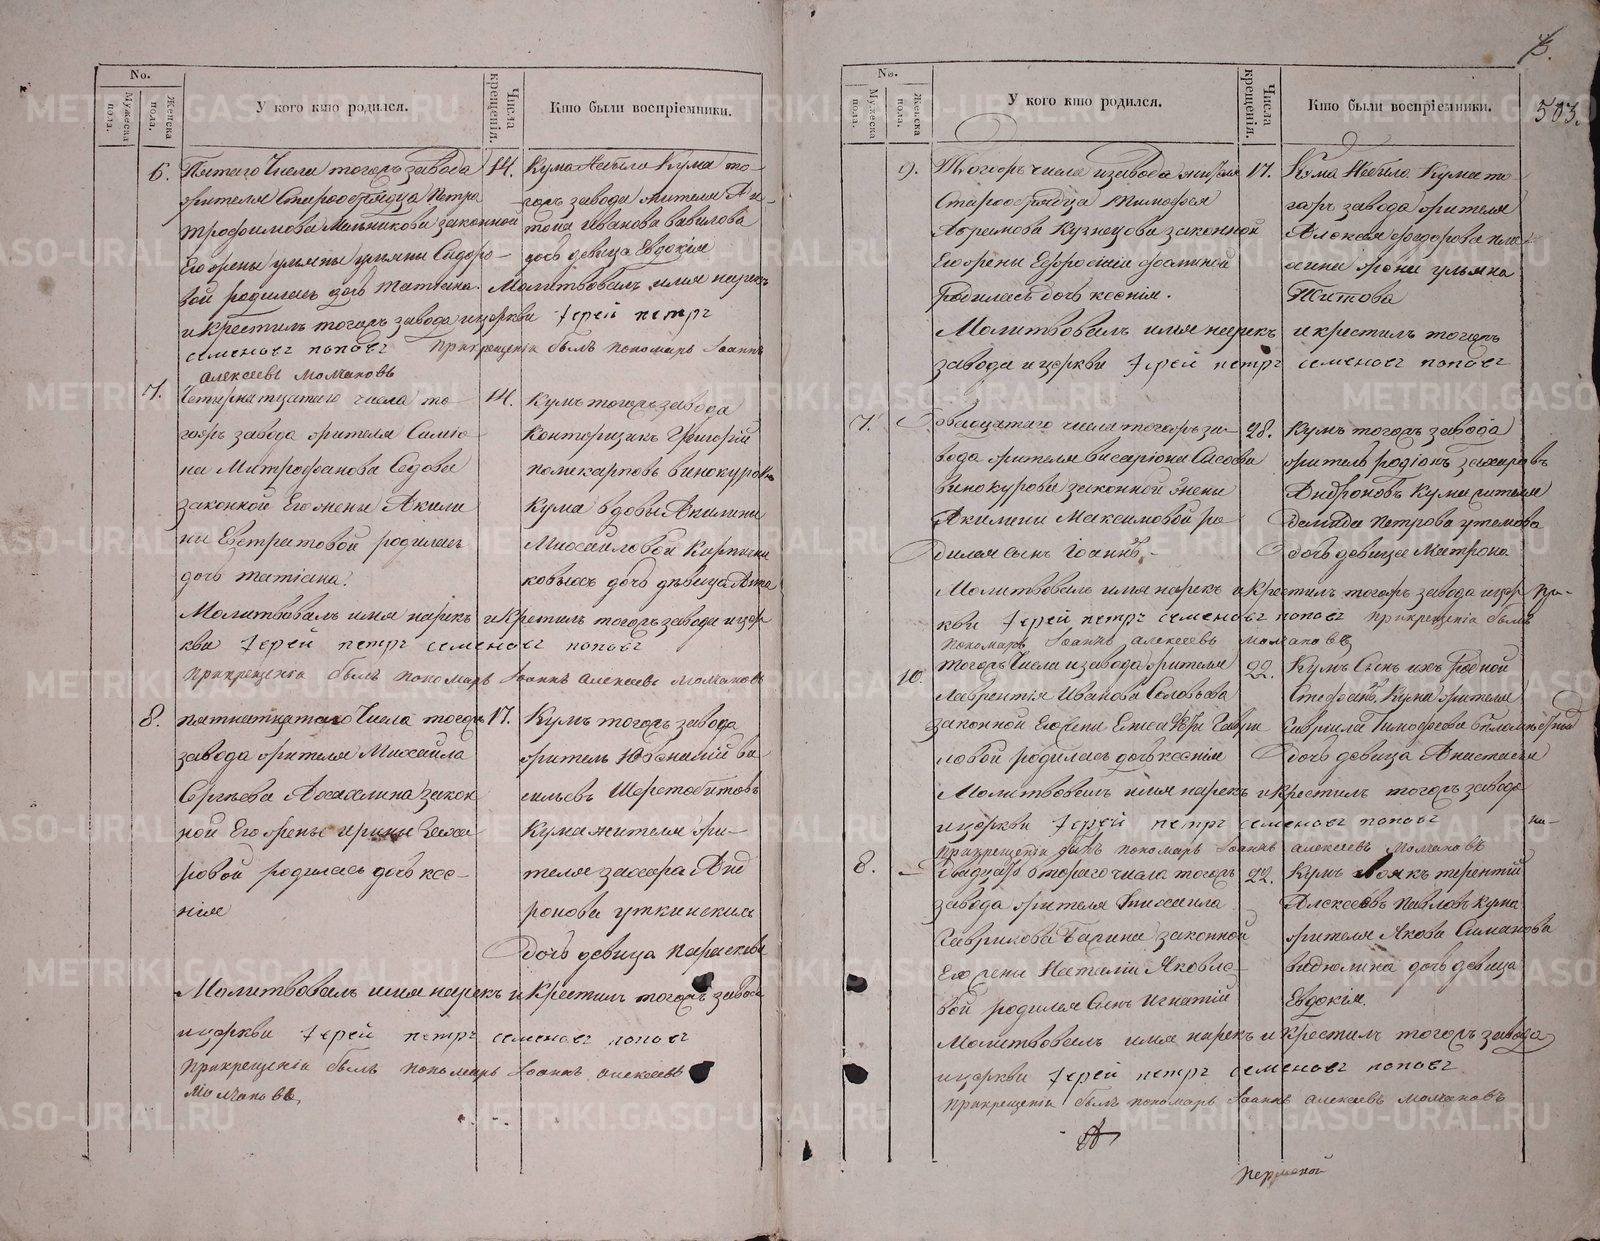 No.
Мужеска пола.
Женска пола.
У кого кто родился.
Числа крещенія.
Кто были воспріемники.
6. Пятаго Числа тогожъ завода 14. Кума Небыло Кума то-
жителя Старообрядца Петра гожъ завода жителя
Трофимова Мельникова законной Иванова вавилова
Егожены ульяны Сидоро- дочь девица Евдокія
вой родилась дочь татіана. Молитвовалъ имя нарекъ
и крестилъ тогожъ завода и церкви іерей петръ
семеновъ поповъ При крещеніи былъ пономарь Іоаннъ
алексеевъ молчановъ
7. Четырнатцатаго числа то- 14. Кумъ тогожъ завода
гожъ завода жителя Конторщикъ Григорій
на Митрофанова Седова поликарповъ винокуровъ
законной Его жены Акили- Кума вдовы Акилины
ны Евстратовой родилась Михайловой
дочь татіана. ковыхъ дочь дѣвица Анна
Молитвовалъ имя нарекъ и Крестилъ тогожъ завода и цер-
кви іерей петръ семеновъ поповъ
При крещеніи былъ пономарь Іоаннъ алексеевъ молчановъ
8. пятнатцатаго Числа тогожъ 17. Кумъ тогожъ завода
завода жителя Михаила житель Ювеналій ва
Сергѣева закон сильевъ Шерстобитовъ
ной Его жены ирины Заха Кума жителя жи-
ровой родилась дочь ксе- теля захара Анд
нія ронова уткинскихъ
дочь девица параскева
Молитвовалъ имя нарекъ и Крестилъ тогожъ завода
и церкви іерей петръ семеновъ поповъ
При крещеніи былъ пономарь Іоаннъ алексеевъ
молчановъ
7.
503.
No.
Мужеска пола.
Женска пола.
У кого кто родился.
Числа крещенія.
Кто были воспріемники.
9. Тогожъ числа и завода жителя 17. Кума Небыло Кума то-
Старообрядца Тимофея гожъ завода жителя
Абрамова Кузнецова законной Алексея федорова
Егожены Ефросиніи жены ульяна
родилась дочь ксенія. Титова
Молитвовалъ имя нарекъ и крестилъ тогожъ
завода и церкви іерей петръ семеновъ поповъ
7. двацатаго числа тогожъ за- 28. Кумъ тогожъ завода
вода жителя висаріона житель родіонъ захаровъ
винокурова законной жены Андроновъ Кума жителя
Акилины Максимовой ро- петрова
дился сынъ Іоаннъ.- дочь девица Матрона
Молитвовалъ имя нарекъ и Крестилъ тогожъ завода и цер-
кви іерей петръ семеновъ поповъ При крещеніи былъ
пономарь Іоаннъ алексеевъ молчановъ
10. тогожъ Числа и завода жителя 22. Кумъ Сынъ ихъ родной
лаврентія Иванова Соловьева Стефанъ, Кума жителя
законной Егожены Гаври Гаврила Тимофеева
ловой родилась дочь ксенія дочь девица Анастасія
Молитвовалъ имя нарекъ и крестилъ тогожъ завода
и церкви іерей петръ семеновъ поповъ
При крещеніи былъ пономарь Іоаннъ алексеевъ молчановъ
8. двадцать втораго числа тогожъ 22. Кумъ терентій
завода жителя михаила Алексеевъ павловъ кума
Гаврилова законной жителя Якова Симанова
Его жены Наталіи Яковле- дочь девица
вой родился Сынъ игнатій Евдокія.
Молитвовалъ имя нарекъ и Крестилъ тогожъ завода
и церкви іерей петръ семеновъ поповъ
При крещеніи былъ пономарь Іоаннъ алексеевъ молчановъ
пермской
METRIKI.GASO-URAL.RU